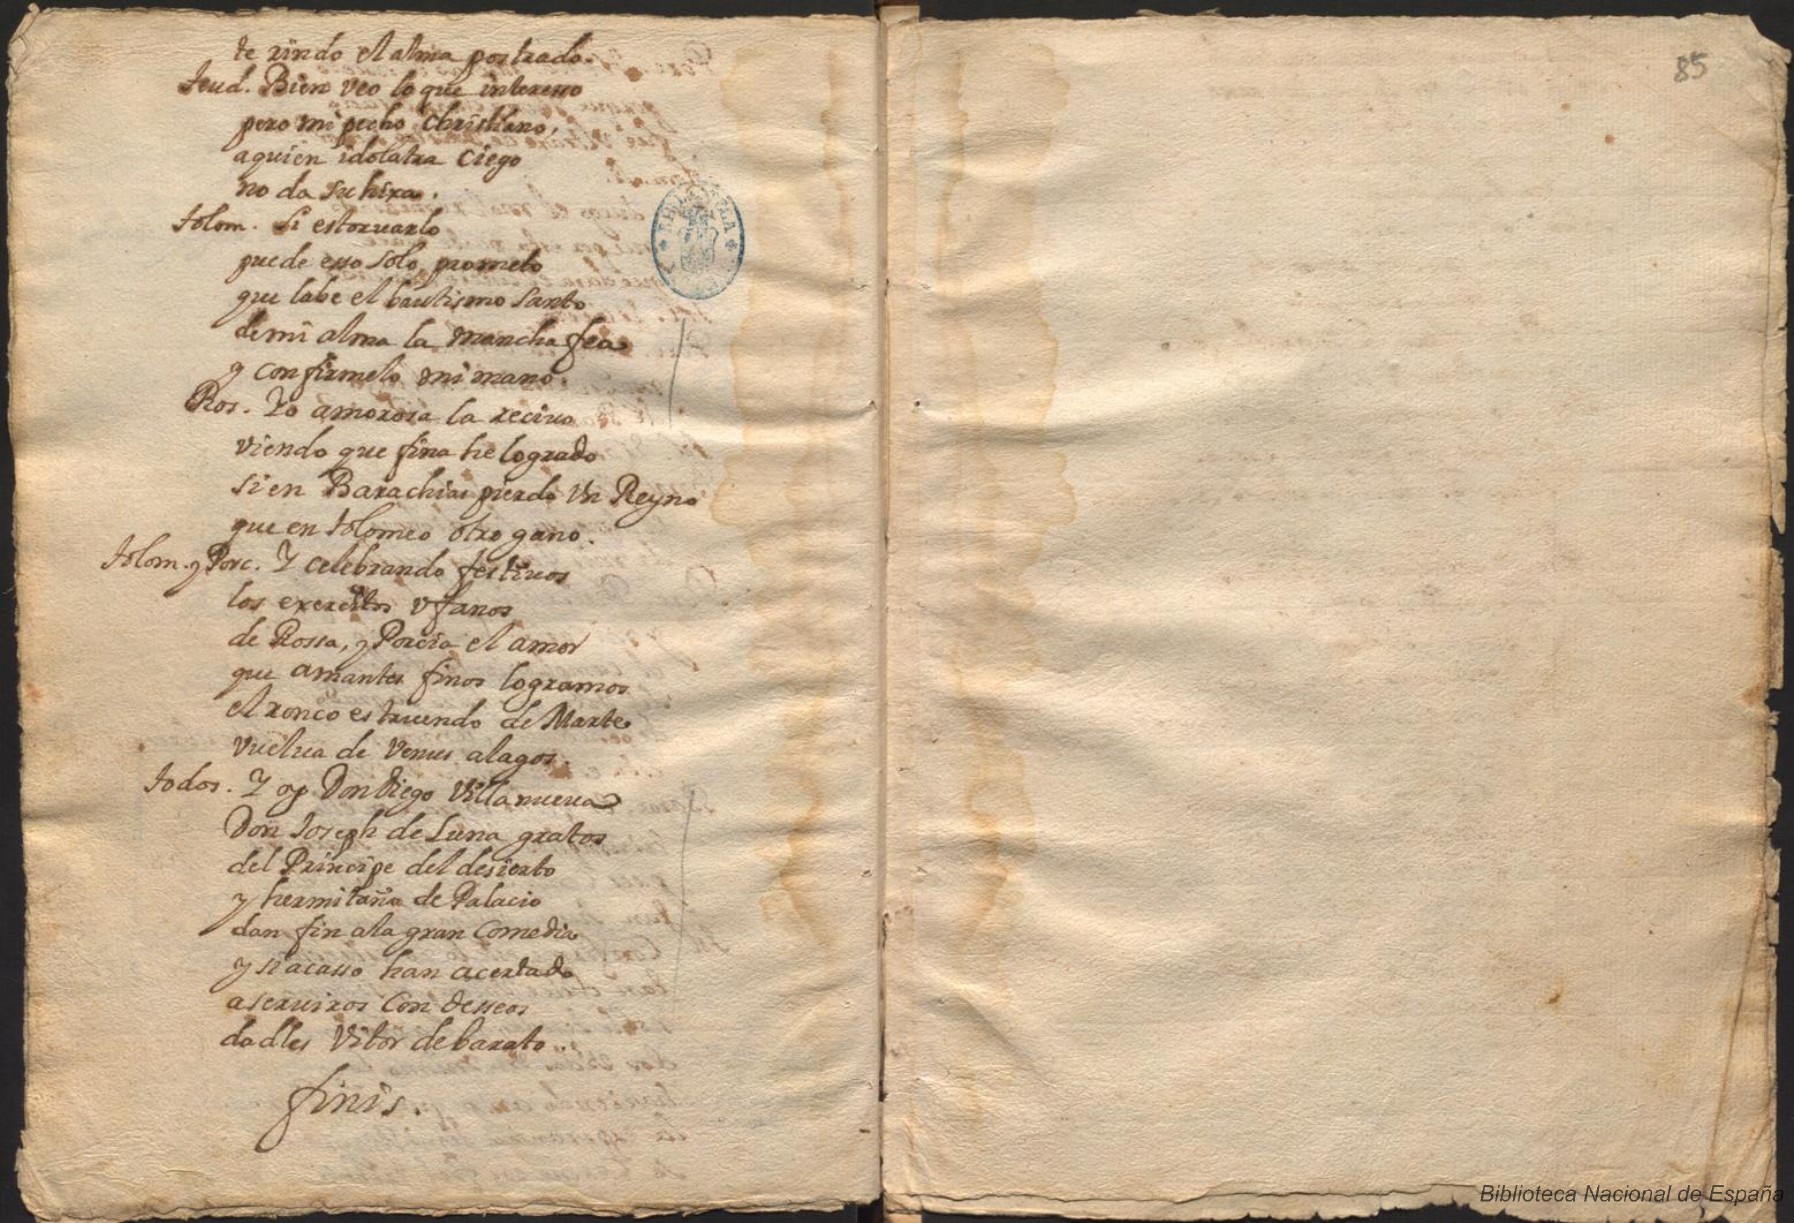 te rindo el alma postrado.
Teud. Bien veo lo que interesso
pero mi pecho christiano,
aquien idolatra ciego
no da su hixa.
Tolom. Si estoruarlo
puede esso solo, prometo
que labe el bautismo santo
de mi alma la mancha fea
y confirmelo mi mano.
Ros. Yo amorosa la reciuo
viendo que fina he logrado
si en Barachias pierdo vn Reyno
que en tolomeo otro gano.
tolom. y Porc. Y celebrando festiuos
los exercitos vfanos
de Rossa, y Porcia el amor
que amantes finos logramos
el ronco estruendo de Marte
vuelua de Venus alagos.
todos. Y oy Don Diego Villanueua
Don Joseph de Luna gratos
del Principe del desierto
y hermitaña de Palacio
dan fin ala gran Comedia
y si acasso han acertado
a seruiros con desseos
dadles Vitor de barato.
finis.
85
Biblioteca Nacional de España